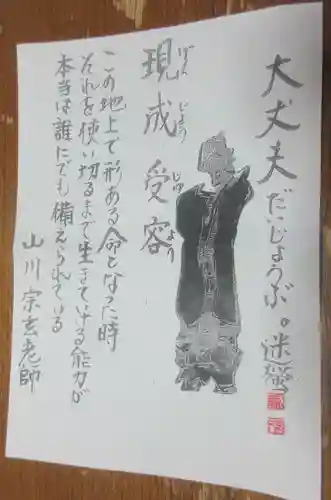 大丈夫だいじょうぶ。
現成受容
げんじょうじゅよう
この地上で形ある命となった時
それを使い切るまで生きていける能力が
本当は誰にでも備えられている
山川宗玄老師